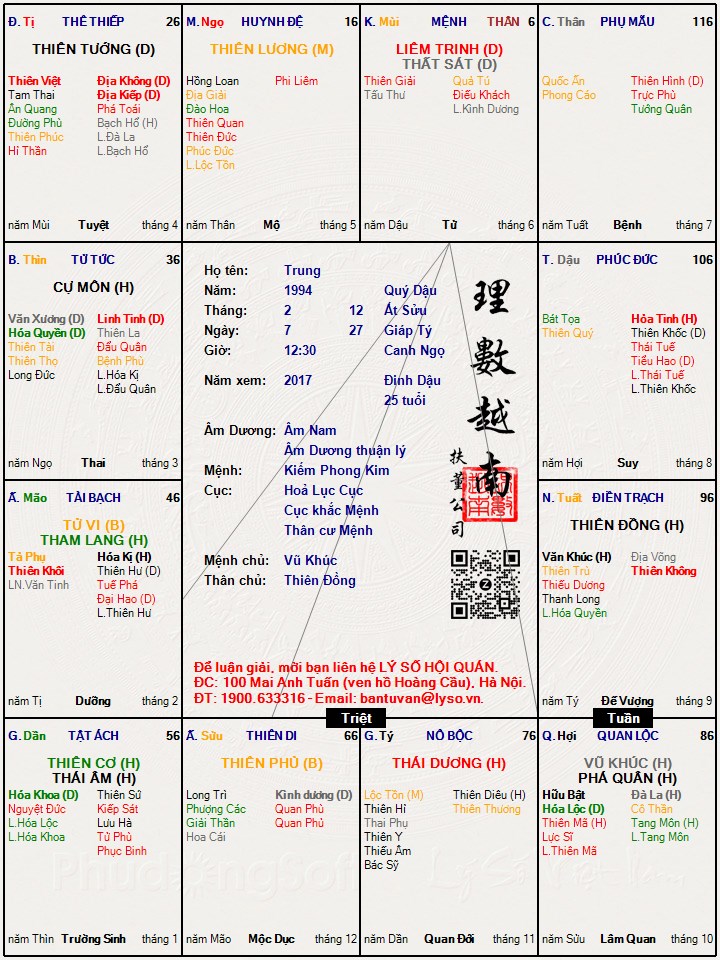 Đ. Tị THÊ THIẾP 26
THIÊN TƯỚNG (D)
Thiên Việt Địa Không (D)
Tam Thai Địa Kiếp (D)
Ân Quang Phá Toái
Đường Phù Bạch Hổ (H)
Thiên Phúc L.Đà La
Hỉ Thần L.Bạch Hổ
năm Mùi Tuyệt tháng 4
M. Ngọ HUYNH ĐỆ 16
THIÊN LƯƠNG (M)
Hồng Loan Phi Liêm
Địa Giải
Đào Hoa
Thiên Quan
Thiên Đức
Phúc Đức
L.Lộc Tồn
năm Thân Mộ tháng 5
K. Mùi MỆNH THÂN 6
LIÊM TRINH (D)
THẤT SÁT (D)
Thiên Giải Quả Tú
Tấu Thư Điếu Khách
L.Kình Dương
năm Dậu Tử tháng 6
C. Thân PHỤ MẪU 116
Quốc Ấn Thiên Hình (D)
Phong Cáo Trực Phù
Tướng Quân
năm Tuất Bệnh tháng 7
B. Thìn TỬ TỨC 36
CỰ MÔN (H)
Văn Xương (D) Linh Tinh (D)
Hóa Quyền (D) Thiên La
Thiên Tài Đẩu Quân
Thiên Thọ Bệnh Phù
Long Đức L.Hóa Kị
L.Đẩu Quân
năm Ngọ Thai tháng 3
Họ tên: Trung
Năm: 1994 Quý Dậu
Tháng: 2 12 Ất Sửu
Ngày: 7 27 Giáp Tý
Giờ: 12:30 Canh Ngọ
Năm xem: 2017 Đinh Dậu
25 tuổi
Âm Dương: Âm Nam
Âm Dương thuận lý
Mệnh: Kiếm Phong Kim
Cục: Hoả Lục Cục
Cục khắc Mệnh
Thân cư Mệnh
Mệnh chủ: Vũ Khúc
Thân chủ: Thiên Đồng
理數越南
扶董公司
Để luận giải, mời bạn liên hệ LÝ SỐ HỘI QUÁN.
ĐC: 100 Mai Anh Tuấn (ven hồ Hoàng Cầu), Hà Nội.
ĐT: 1900.633316 - Email: bantuvan@lyso.vn.
T. Dậu PHÚC ĐỨC 106
Bát Tọa Hỏa Tinh (H)
Thiên Quý Thiên Khốc (D)
Thái Tuế
Tiểu Hao (D)
L.Thái Tuế
L.Thiên Khốc
năm Hợi Suy tháng 8
Ấ. Mão TÀI BẠCH 46
TỬ VI (B)
THAM LANG (H)
Tả Phụ Hóa Kị (H)
Thiên Khôi Thiên Hư (D)
LN.Văn Tinh Tuế Phá
Đại Hao (D)
L.Thiên Hư
năm Tị Dưỡng tháng 2
N. Tuất ĐIỀN TRẠCH 96
THIÊN ĐỒNG (H)
Văn Khúc (H) Địa Võng
Thiên Trù Thiên Không
Thiếu Dương
Thanh Long
L.Hóa Quyền
năm Tý Đế Vượng tháng 9
Triệt
Tuần
G. Dần TẬT ÁCH 56
THIÊN CƠ (H)
THÁI ÂM (H)
Hóa Khoa (D) Thiên Sứ
Nguyệt Đức Kiếp Sát
L.Hóa Lộc Lưu Hà
L.Hóa Khoa Tử Phù
Phục Binh
năm Thìn Trường Sinh tháng 1
Ấ. Sửu THIÊN DI 66
THIÊN PHỦ (B)
Long Trì Kình dương (D)
Phượng Các Quan Phù
Giải Thần Quan Phủ
Hoa Cái
năm Mão Mộc Dục tháng 12
G. Tý NÔ BỘC 76
THÁI DƯƠNG (H)
Lộc Tồn (M) Thiên Diêu (H)
Thiên Hỉ Thiên Thương
Thai Phụ
Thiên Y
Thiếu Âm
Bác Sỹ
năm Dần Quan Đới tháng 11
Q. Hợi QUAN LỘC 86
VŨ KHÚC (H)
PHÁ QUÂN (H)
Hữu Bật Đà La (H)
Hóa Lộc (D) Cô Thần
Thiên Mã (H) Tang Môn (H)
Lực Sĩ L.Tang Môn
L.Thiên Mã
năm Sửu Lâm Quan tháng 10